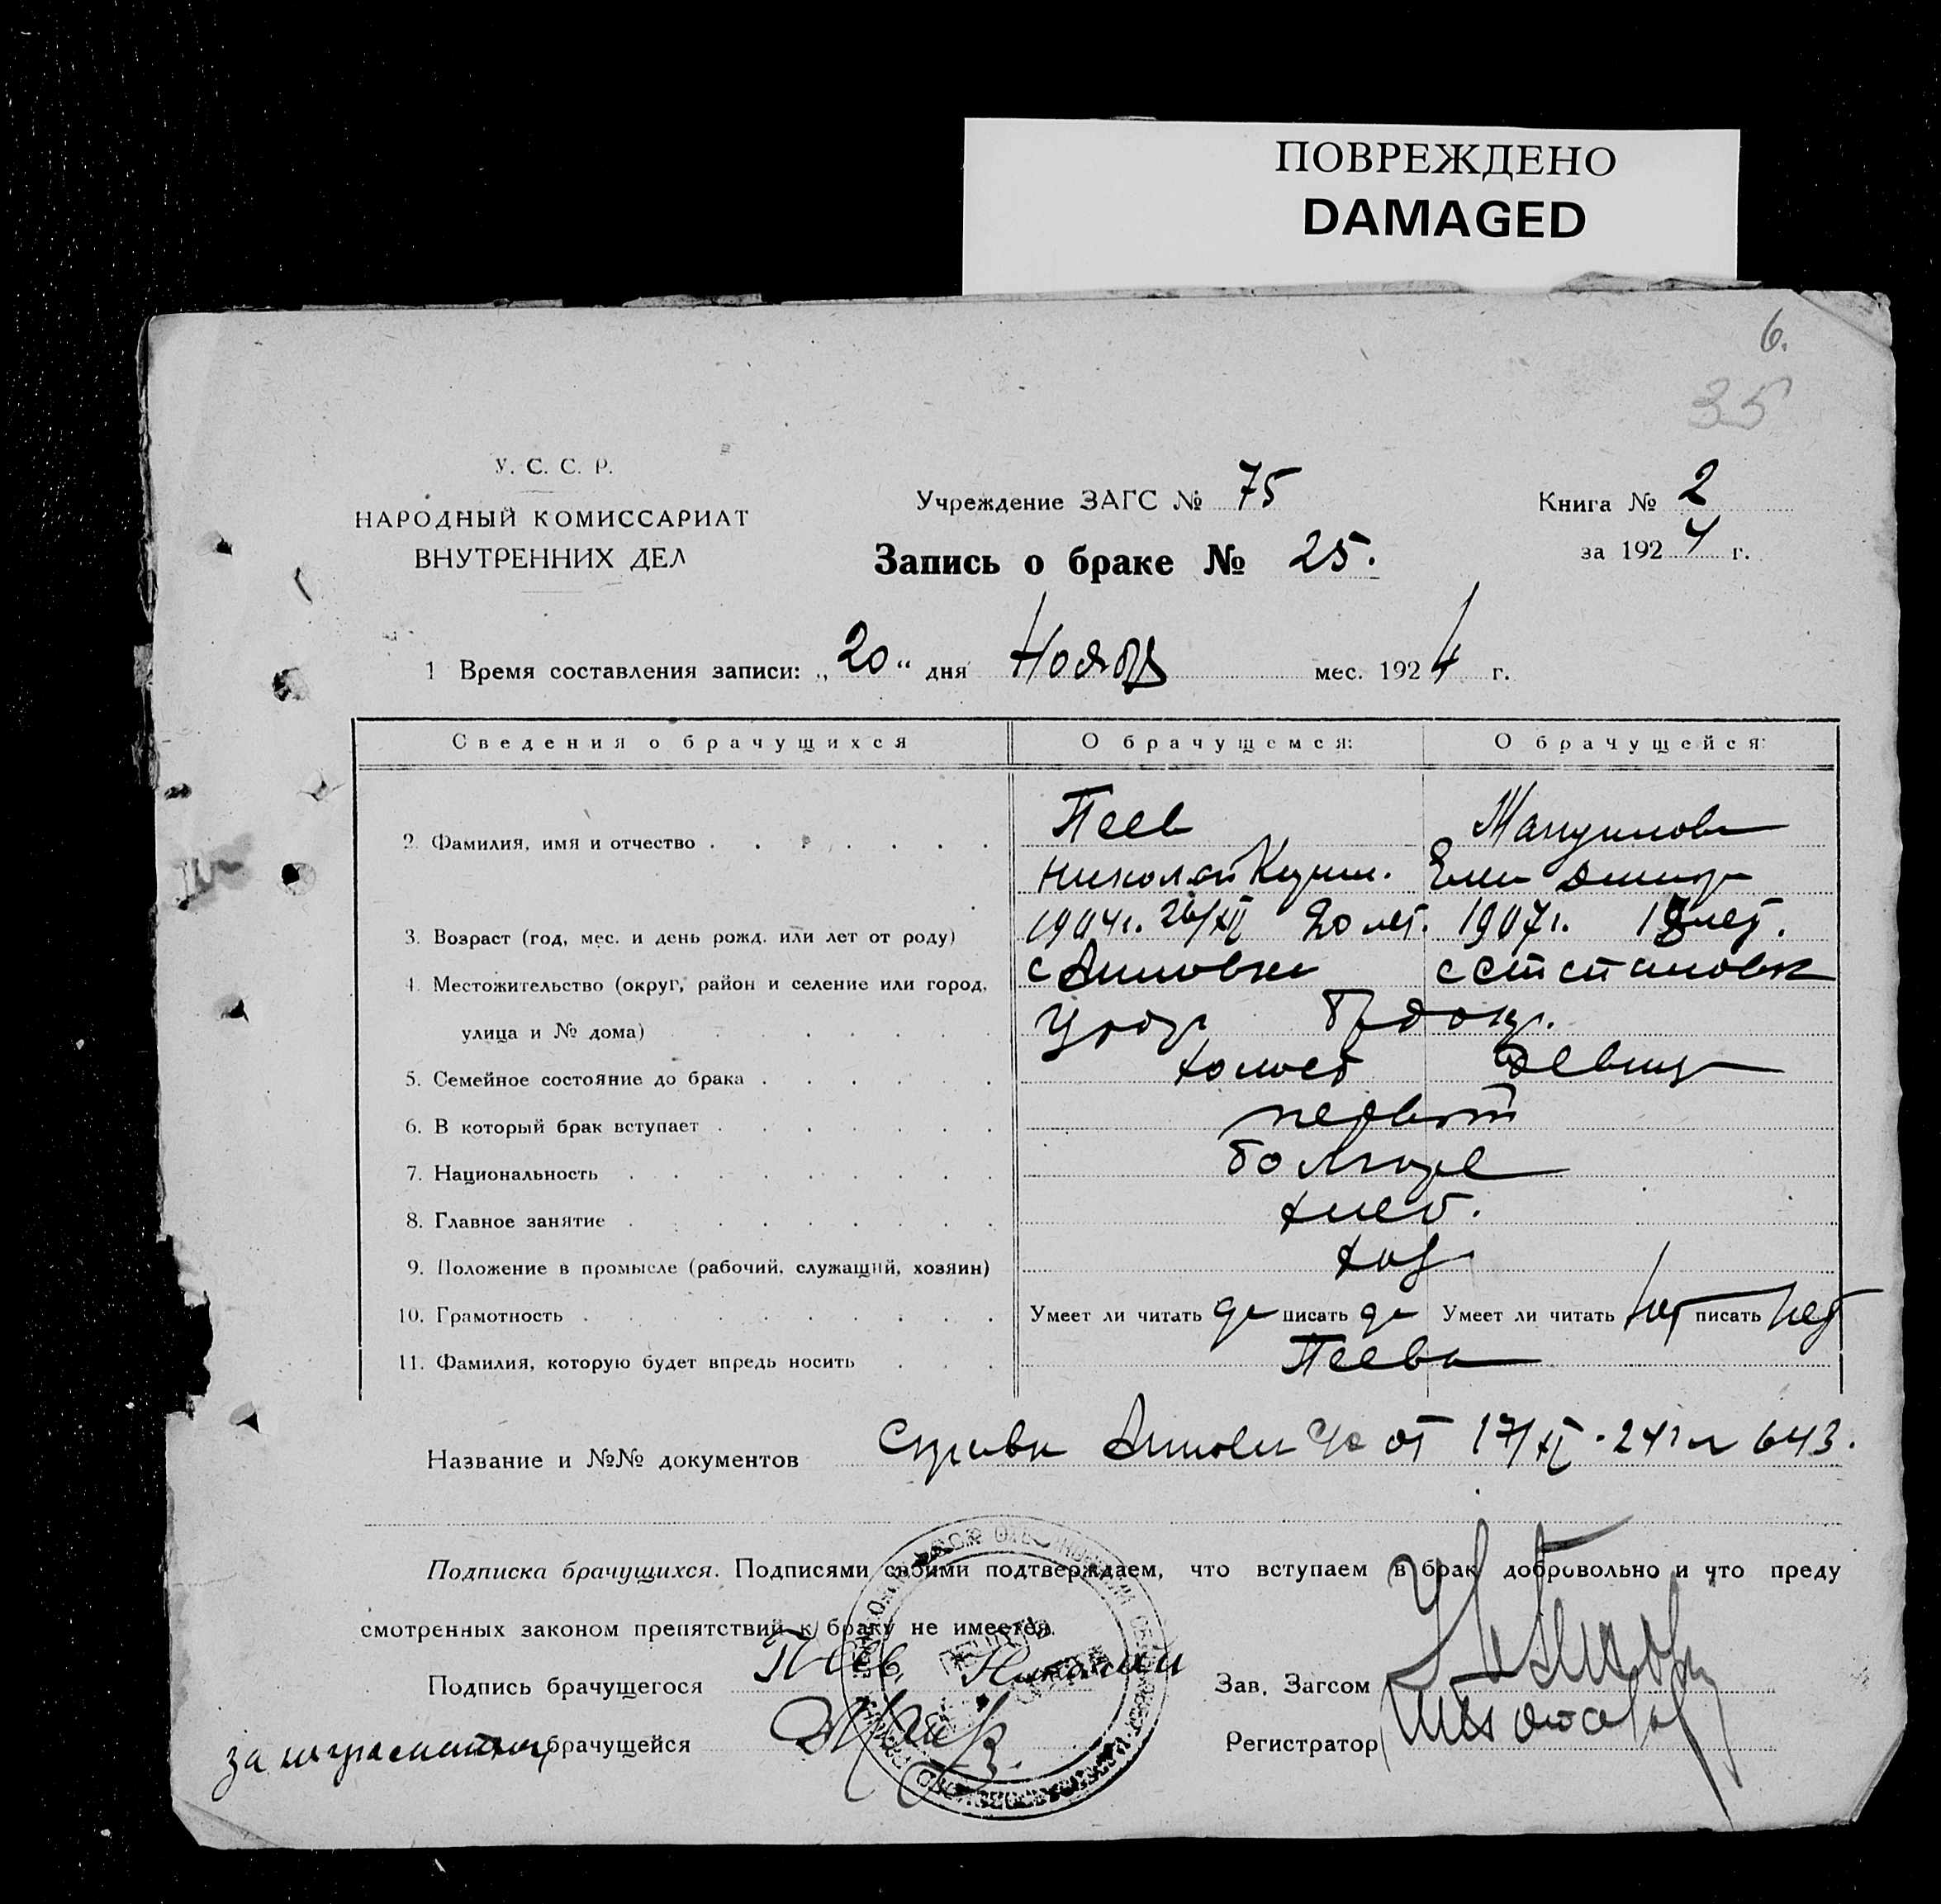 ПОВРЕЖДЕНО
DAMAGED
6.
35
У. С. С. Р.
НАРОДНЫЙ КОМИССАРИАТ
ВНУТРЕННИХ ДЕЛ
Учреждение ЗАГС № 75
Книга № 2
за 1924 г.
Запись о браке № 25.
1 Время составления записи: „20“ дня Ноября мес. 1924 г.
Сведения о брачущихся О брачущемся: О брачущейся:
2. Фамилия, имя и отчество Пеев
Николай
3. Возраст (год, мес. и день рожд. или лет от роду) 1904г. 26/XII 20 лет. 1907г. 18 лет.
4. Местожительство (округ, район и селение или город, с
улица и № дома)
5. Семейное состояние до брака холост Девица
6. В который брак вступает первый
7. Национальность болгаре
8. Главное занятие хлеб.
9. Положение в промысле (рабочий, служащий, хозяин) хоз
10. Грамотность Умеет ли читать да писать да Умеет ли читать нет писать нет
11. Фамилия, которую будет впредь носить Пеева
Название и №№ документов Справка от 17/XI-24г № 643.
Подписка брачущихся. Подписями своими подтверждаем, что вступаем в брак добровольно и что преду
смотренных законом препятствий к браку не имеется.
Подпись брачущегося Пеев Николай
Зав. Загсом
за неграмотную брачущейся
Регистратор